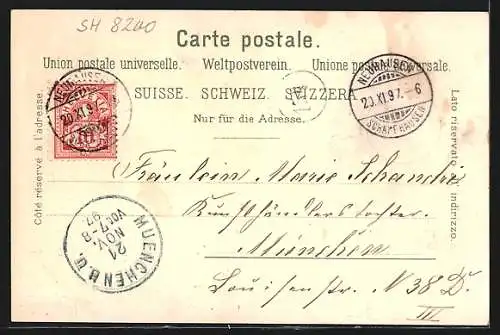 SH 8200
Carte postale.
Union postale universelle. Weltpostverein. Unione postale universale.
SUISSE. SCHWEIZ. SVIZZERA
Nur für die Adresse.
Côté réservé à l'adresse.
Lato riservato all' indirizzo.
NEUHAUSEN
20.XI.97.-6
SCHAFFHAUSEN
NEUHAUSEN
20.XI.97
10
Fräulein Marie
Kunsthändlerstochter.
München
Louisenstr. N 38 D.
III
MUENCHEN B.O.
21
NOV.
VOR 7-8
97.